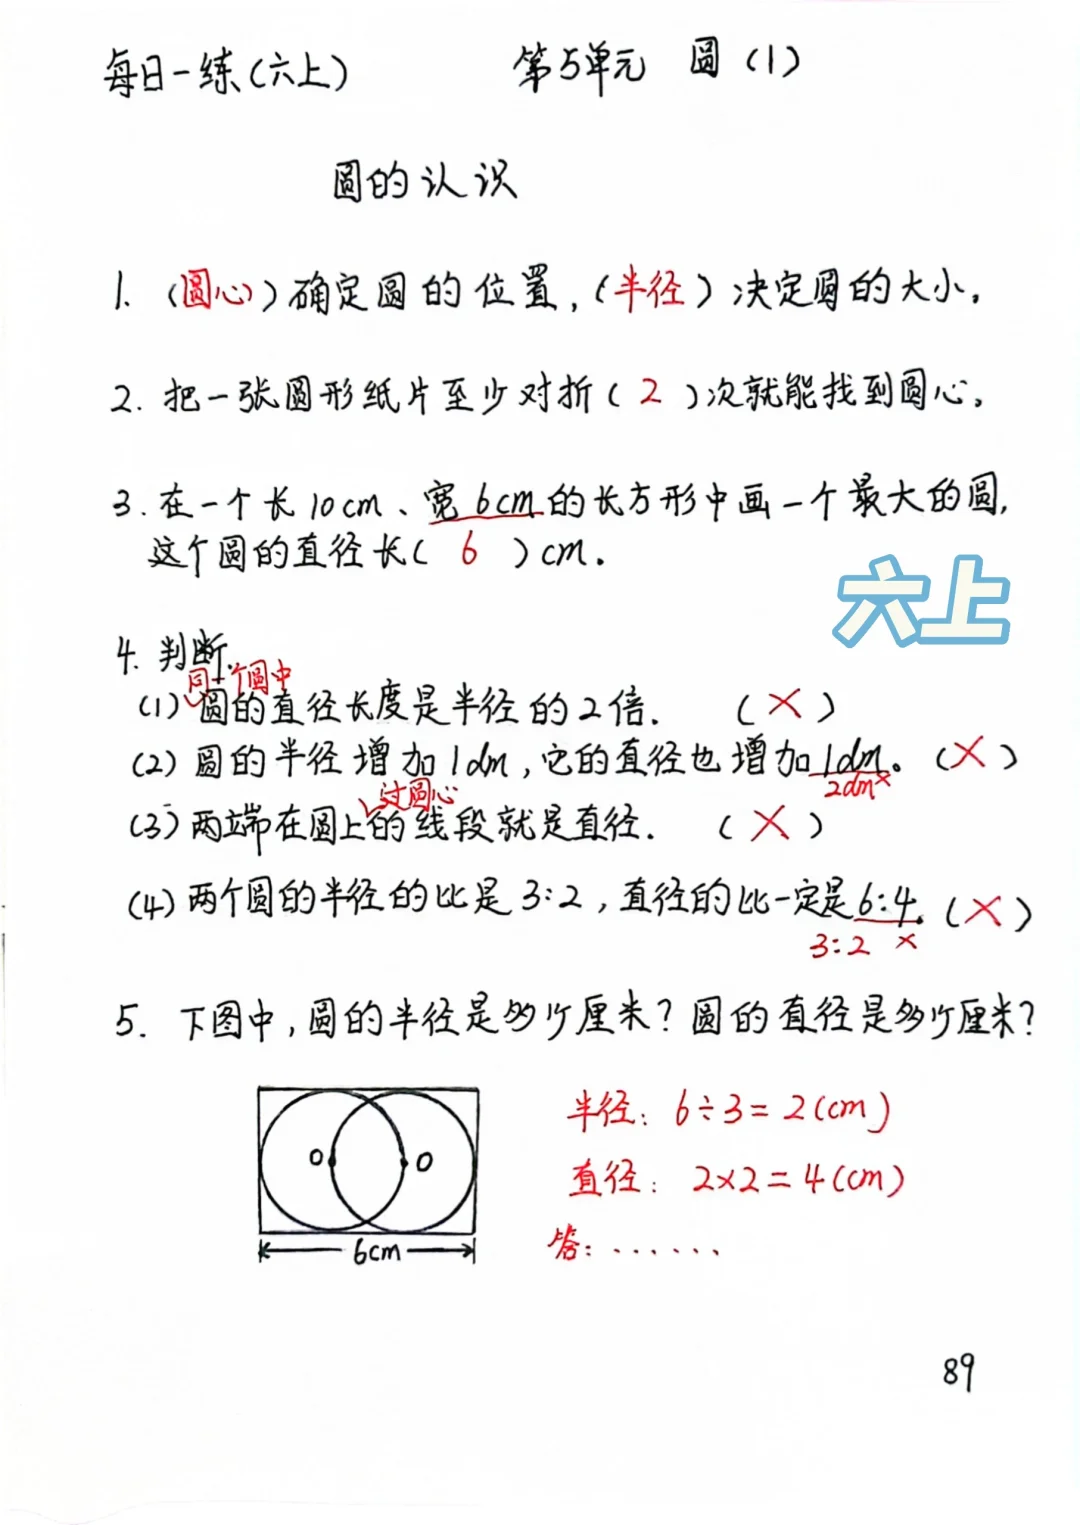 每日一练(六上) 第5单元 圆(1)
圆的认识
1. (圆心)确定圆的位置,(半径)决定圆的大小。
2. 把一张圆形纸片至少对折( 2 )次就能找到圆心。
3. 在一个长10cm、宽6cm的长方形中画一个最大的圆,
这个圆的直径长( 6 )cm.
六上
4. 判断.
同一个圆中
(1) 圆的直径长度是半径的2倍. (×)
(2) 圆的半径增加1dm,它的直径也增加1dm。(×)
2dm×
过圆心
(3) 两端在圆上的线段就是直径. (×)
(4) 两个圆的半径的比是3:2,直径的比一定是6:4. (×)
3:2 ×
5. 下图中,圆的半径是多少厘米?圆的直径是多少厘米?
半径: 6÷3=2(cm)
O O
直径: 2×2=4(cm)
6cm
答:......
89